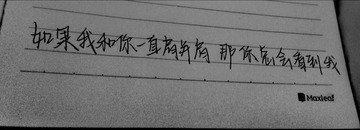 如果我和你一直肩并肩 那你怎会看到我
Maxleaf